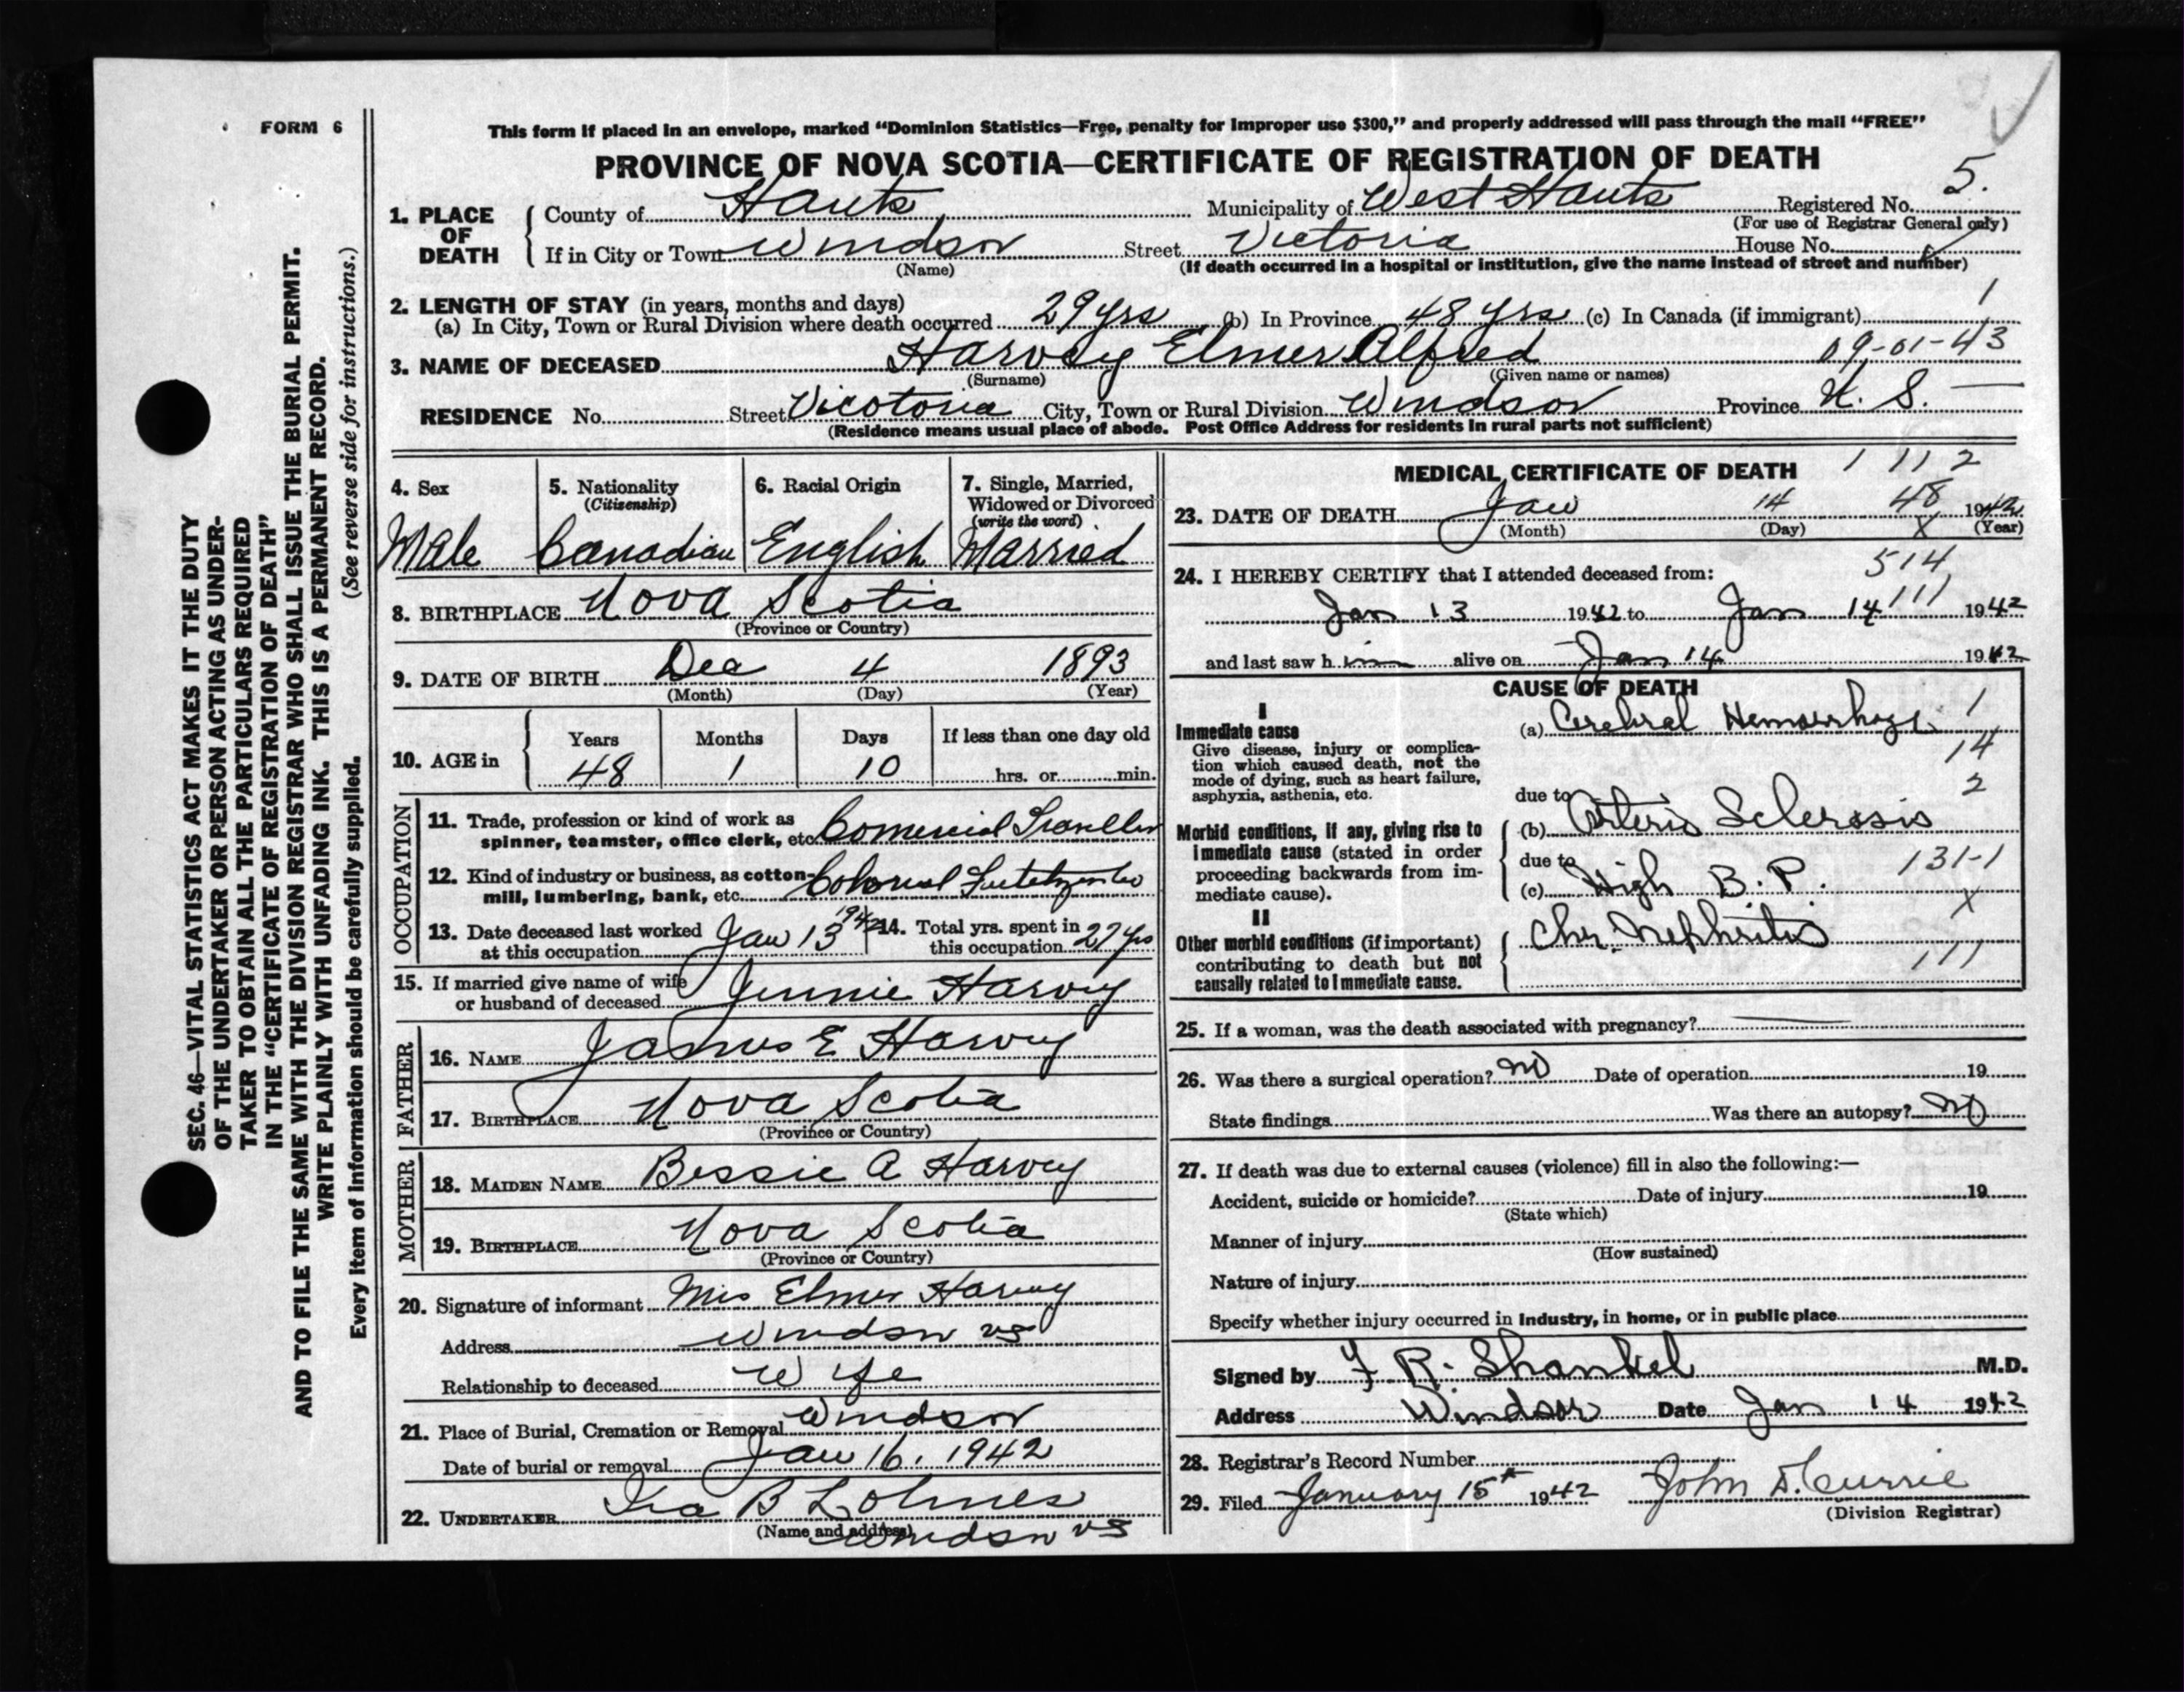 FORM 6
This form if placed in an envelope, marked “Dominion Statistics—Free, penalty for improper use $300,” and properly addressed will pass through the mail “FREE”
PROVINCE OF NOVA SCOTIA—CERTIFICATE OF REGISTRATION OF DEATH
5.
1. PLACE OF DEATH { County of Hants Municipality of West Hants Registered No.
(For use of Registrar General only)
If in City or Town Windsor Street Victoria House No.
(Name) (If death occurred in a hospital or institution, give the name instead of street and number)
2. LENGTH OF STAY (in years, months and days)
(a) In City, Town or Rural Division where death occurred 29 yrs (b) In Province 48 yrs (c) In Canada (if immigrant) 1
3. NAME OF DECEASED Harvey Elmer Alfred 09-01-43
(Surname) (Given name or names)
RESIDENCE No. Street Vicotoria City, Town or Rural Division Windsor Province N. S.
(Residence means usual place of abode. Post Office Address for residents in rural parts not sufficient)
4. Sex
Male
5. Nationality
(Citizenship)
Canadian
6. Racial Origin
English
7. Single, Married,
Widowed or Divorced
(write the word)
Married
8. BIRTHPLACE Nova Scotia
(Province or Country)
9. DATE OF BIRTH Dec 4 1893
(Month) (Day) (Year)
10. AGE in
Years Months Days If less than one day old
48 1 10 hrs. or min.
OCCUPATION
11. Trade, profession or kind of work as
spinner, teamster, office clerk, etc. Comercial Traveller
12. Kind of industry or business, as cotton-
mill, lumbering, bank, etc. Colonial
13. Date deceased last worked
at this occupation Jan 13 1942
14. Total yrs. spent in
this occupation 27 yrs
15. If married give name of wife
or husband of deceased Jennie Harvey
FATHER
16. NAME James E Harvey
17. BIRTHPLACE Nova Scotia
(Province or Country)
MOTHER
18. MAIDEN NAME Bessie A Harvey
19. BIRTHPLACE Nova Scotia
(Province or Country)
20. Signature of informant Mrs Elmer Harvey
Address Windsor NS
Relationship to deceased Wife
21. Place of Burial, Cremation or Removal Windsor
Date of burial or removal Jan 16, 1942
22. UNDERTAKER Ira B Lohnes
(Name and address) Windsor NS
MEDICAL CERTIFICATE OF DEATH 1 11 2
23. DATE OF DEATH Jan 14 48 1942
(Month) (Day) X (Year)
24. I HEREBY CERTIFY that I attended deceased from: 514
Jan 13 1942 to Jan 14 111 1942
and last saw h im alive on Jan 14 1942
CAUSE OF DEATH
I
Immediate cause
(a) Cerebral Hemorrhage 1
Give disease, injury or complica-
tion which caused death, not the
mode of dying, such as heart failure,
asphyxia, asthenia, etc.
14
due to 2
Morbid conditions, if any, giving rise to
immediate cause (stated in order
proceeding backwards from im-
mediate cause).
(b) Arterio Sclerosis
due to 131-1
(c) High B. P.
X
II
Other morbid conditions (if important)
contributing to death but not
causally related to immediate cause.
Chr. Nephritis
111
25. If a woman, was the death associated with pregnancy?
26. Was there a surgical operation? no Date of operation 19
State findings Was there an autopsy? no
27. If death was due to external causes (violence) fill in also the following:—
Accident, suicide or homicide? Date of injury 19
(State which)
Manner of injury
(How sustained)
Nature of injury
Specify whether injury occurred in industry, in home, or in public place
Signed by F R. Shankel M.D.
Address Windsor Date Jan 14 1942
28. Registrar's Record Number
29. Filed January 15th 1942 John D. Currie
(Division Registrar)
SEC. 46—VITAL STATISTICS ACT MAKES IT THE DUTY
OF THE UNDERTAKER OR PERSON ACTING AS UNDER-
TAKER TO OBTAIN ALL THE PARTICULARS REQUIRED
IN THE “CERTIFICATE OF REGISTRATION OF DEATH”
AND TO FILE THE SAME WITH THE DIVISION REGISTRAR WHO SHALL ISSUE THE BURIAL PERMIT.
WRITE PLAINLY WITH UNFADING INK. THIS IS A PERMANENT RECORD.
Every item of information should be carefully supplied. (See reverse side for instructions.)